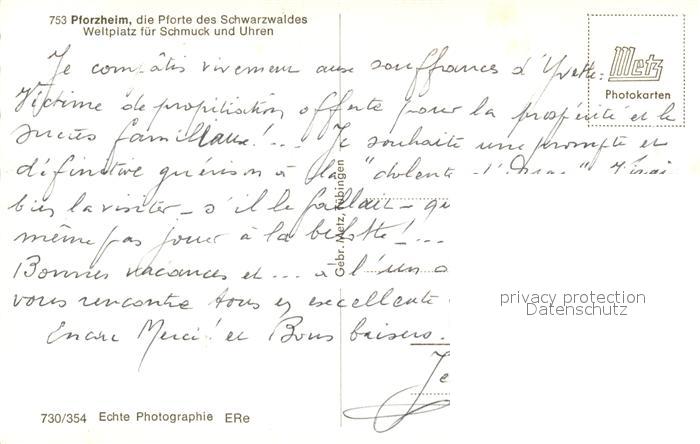 753 Pforzheim, die Pforte des Schwarzwaldes
Weltplatz für Schmuck und Uhren
Metz
Photokarten
Je compâtis vivement aux souffrances d'Yvette.
Victime de propitiation offerte pour la prospérité et le
succès familiaux!... Je souhaite une prompte et
définitive guérison à la "dolente
bien la visiter - s'il le fallait -
même pas jouer à la belotte!...
Bonnes vacances et... à l'un
vous rencontre tous en excellente
Encore Merci! et Bons baisers.
Gebr. Metz, Tübingen
privacy protection
Datenschutz
730/354 Echte Photographie ERe